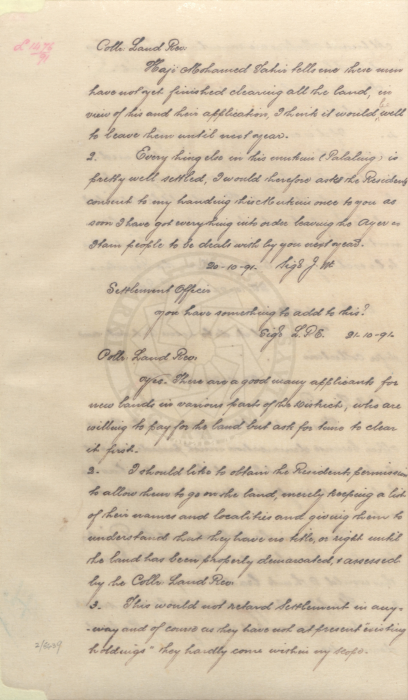 LR 1476
91
Collr Land Rev.
Haji Mohamed Tahir tells me here men
have not yet finished clearing all the land, in
view of his and their application, I think it would, well
to leave them until next year.
2. Everything else in his mukim (Petaling) is
pretty well settled, I would therefore ask the Residents
consent to my handing his Mukim once to you as
soon I have got everything into order leaving the Ayer
Itam people to be dealt with by you next year.
20-10-91. Sigd J.
Settlement Officer
you have something to add to this?
Sigd L.P.E. 21.10.91
Collr Land Rev.
Yes. There are a good many applicants for
new lands in various parts of the District, who are
willing to pay for the land but ask for time to clear
it first.
2. I should like to obtain the Residents permission
to allow them to go on the land, merely keeping a list
of their names and localities and giving them to
understand that they have no title, or right until
the land has been properly demarcated, & assessed
by the Collr Land Rev.
3. This would not retard Settlement in any-
way and of course as they have not at present "existing
holdings" they hardly come within my scope.